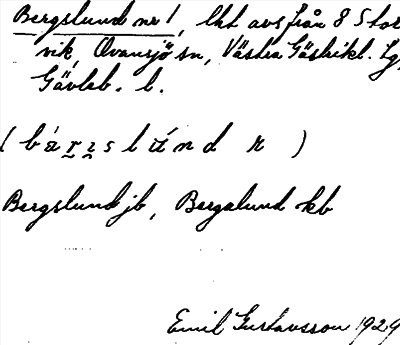 Bergslund nr 1, lht avs från 8 Stor
vik, Ovansjö sn, Västra Gästrikl. Lg,
Gävleb. l.
Bergslund jb, Bergalund kb
Emil Gustavsson 1929